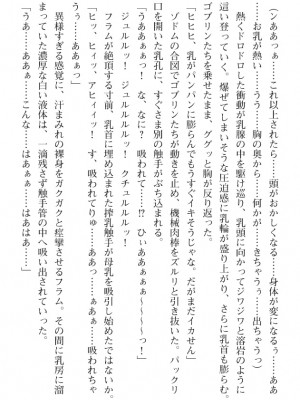 (ンああっ…ぁ……これ以上されたら……頭がおかしくなる……身体が変になるぅ……ああ
お乳が熱い……うう……胸の奥から……何かが……きちゃうぅ……出ちゃうっ)
熱くドロドロした衝動が乳腺の中を駆け巡り、乳頭に向かってジワジワと溶岩のように
這い登っていく。爆ぜてしまいそうな圧迫感に乳輪が盛り上がり、さらに乳首も膨らむ。
ゴブリンたちを乗せたまま、ググッと胸が反り返った。
「ヒヒヒ、乳がパンパンに膨らんでもうすぐイキそうじゃな。だがまだイカせん」
ゾドムの合図でゴブリンたちが動きを止め、機械肉棒をズルリと引き抜いた。パックリ
口を開いた乳孔に、すぐさま別の触手がぶち込まれる。
「うああぁぁっ！　な、なに？　吸われて……？　ひぃああぁぁ～～～～～っ！」
ジュルルルッ！　ジュルルルルッ！　クチュルルルッ！
フラムが絶頂する寸前、乳首に埋め込まれた搾乳触手が母乳を吸引し始めたではないか。
「ヒッ、ヒィッ、アヒィィッ！　す、吸われてりゅ……ああぅ……ぁあぁ……吸われちゃ
うぅ……ああぁぁ～～～～～～っ！」
異様すぎる感覚に、汗まみれの裸身をガクガクと痙攣させるフラム。その間に乳房に溜
まっていた濃厚な白い液体は、一滴残さず触手管の中へ吸い出されていった。
「うあ……ああぁ……こんな……はぁぁ……はあはあ……」